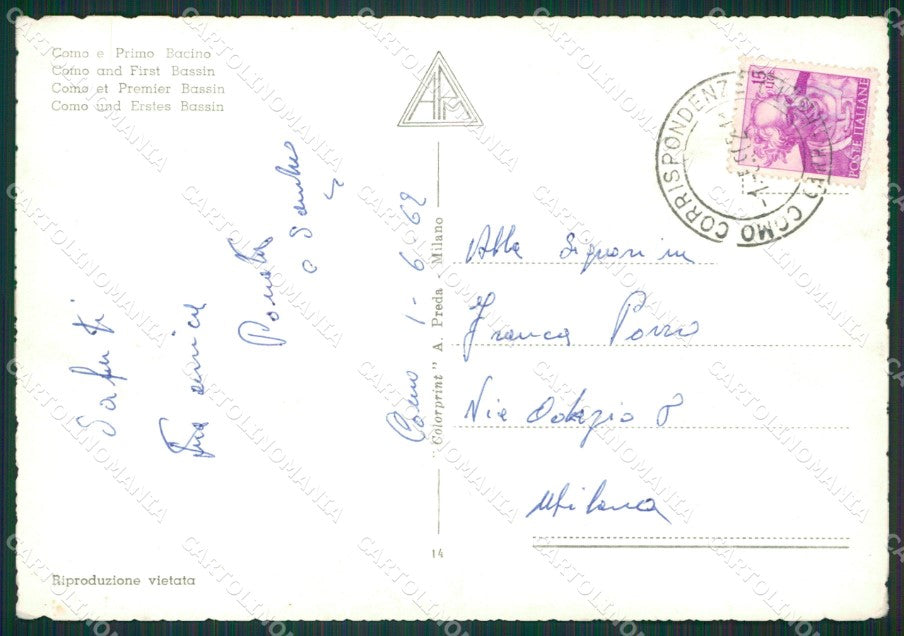 Como e Primo Bacino
Como and First Bassin
Como et Premier Bassin
Como und Erstes Bassin
APM
15
LIRE
POSTE ITALIANE
CORRISPONDENZE
COMO
Saluti
Tua amica
Como 1-6-62
"Colorprint" A. Preda - Milano
Alla Signorina
Franca Porro
Via 8
Milano
14
Riproduzione vietata
CARTOLINOMANIA